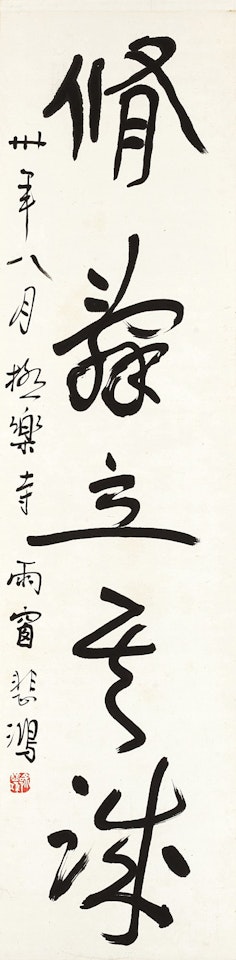 脩辭立其誠
卅年八月極樂寺雨窗悲鴻